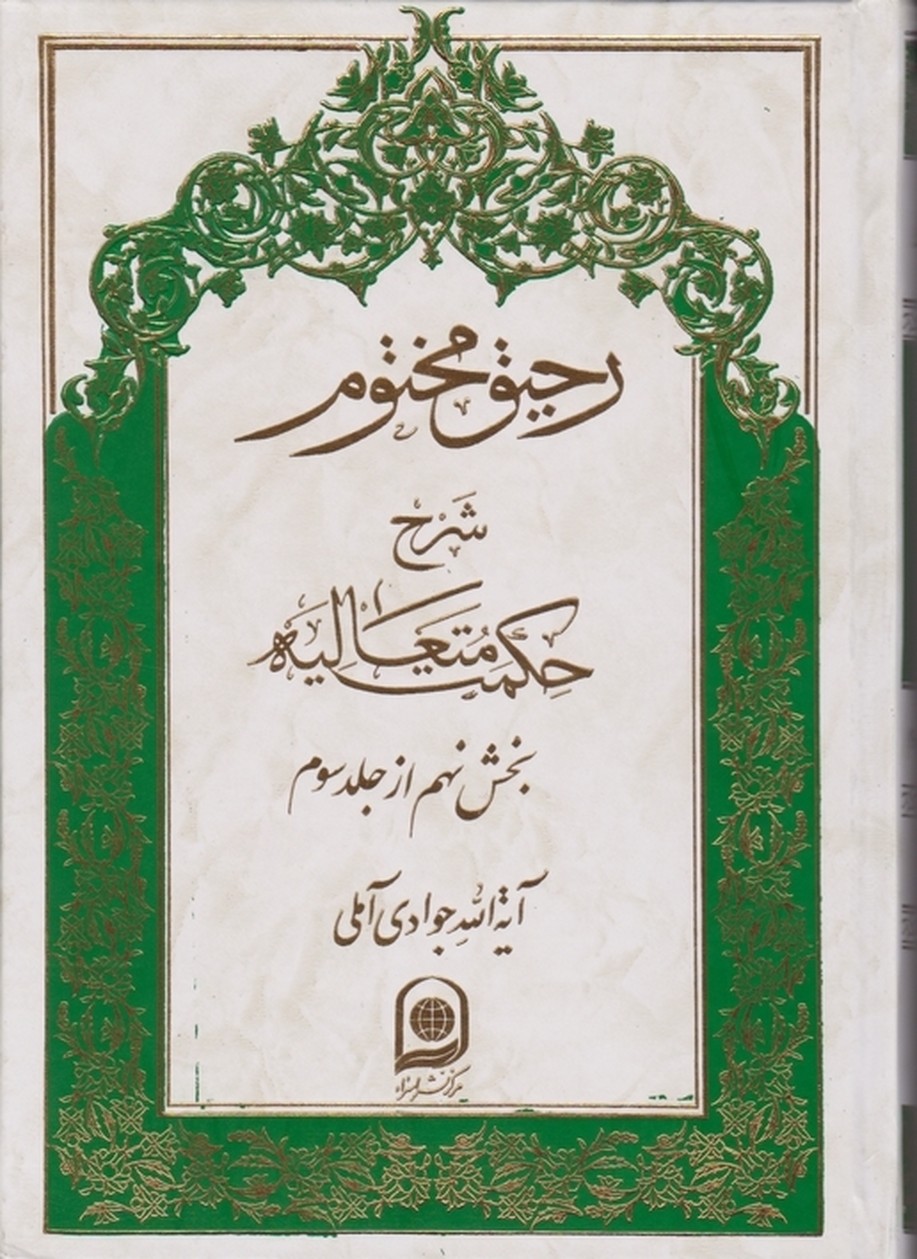 رحیق مختوم
شَرْح
حِکمَت مُتَعَالِیَه
بخش نهم از جلد سوم
آیة اللهِ جوادی آملی
مرکز نشر اسراء